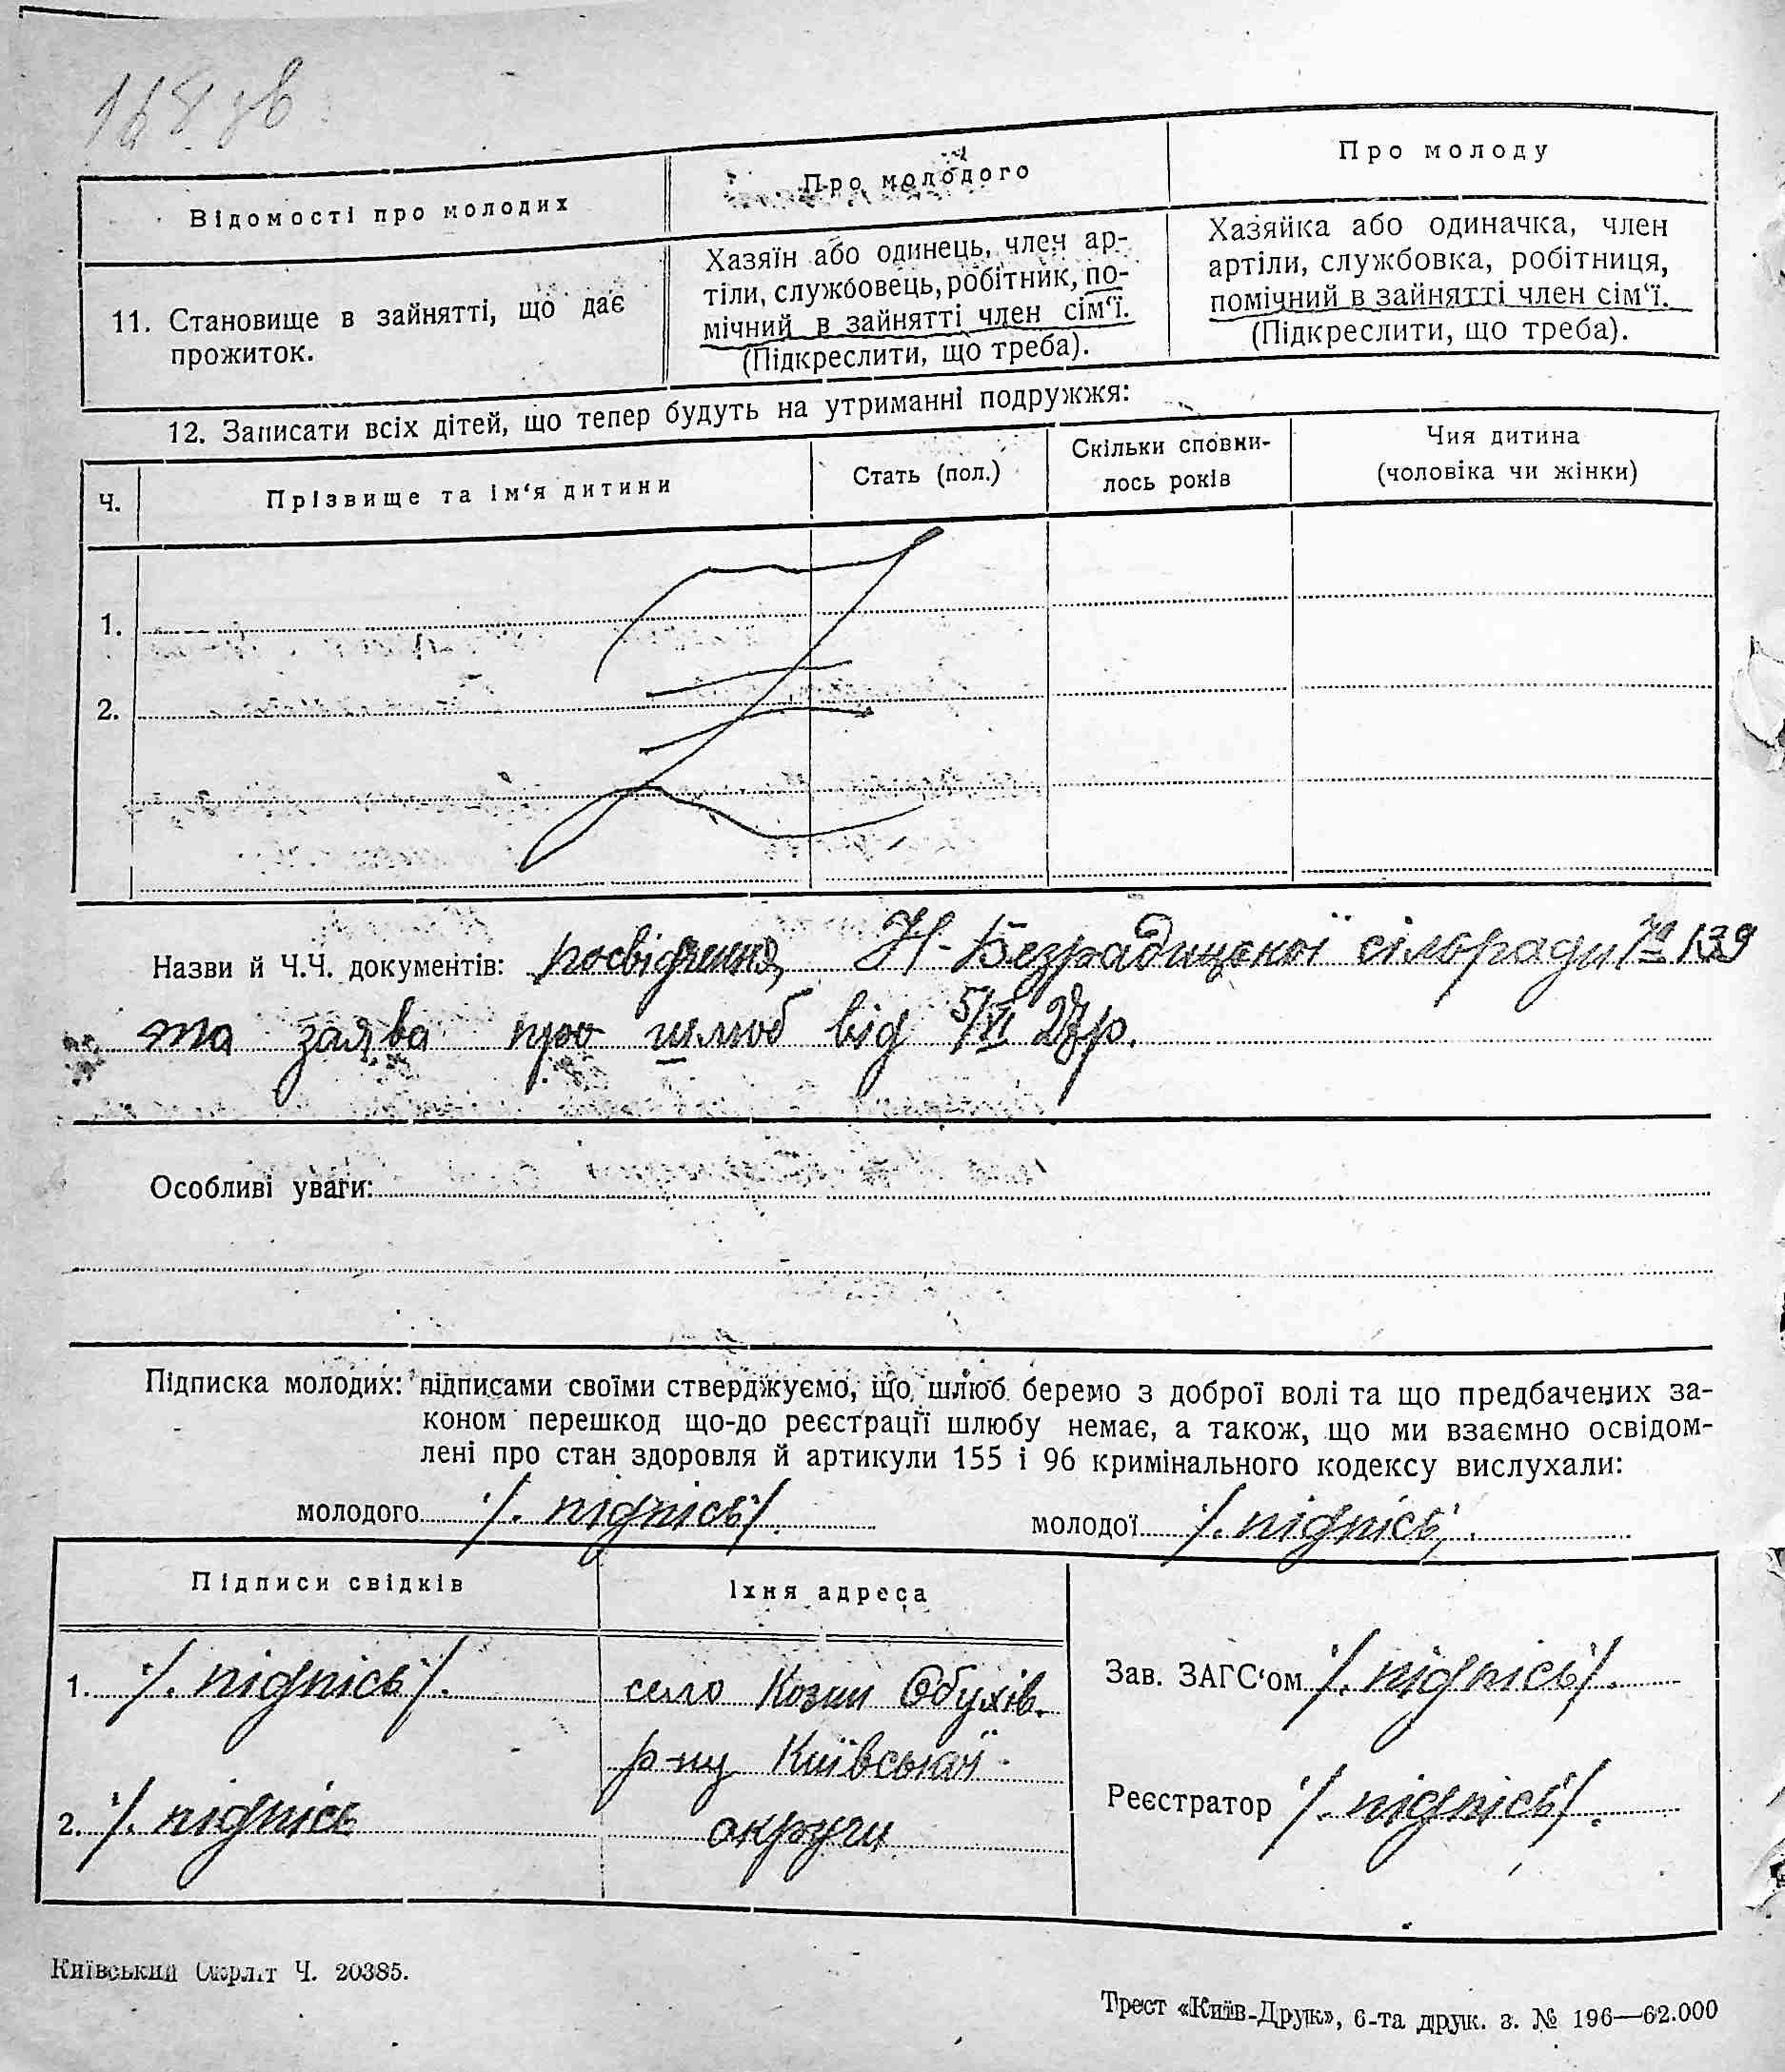 168 зв.
Відомості про молодих
Про молодого
Про молоду
11. Становище в зайнятті, що дає
прожиток.
Хазяїн або одинець, член ар-
тіли, службовець, робітник, по-
мічний в зайнятті член сім‘ї.
(Підкреслити, що треба).
Хазяйка або одиначка, член
артіли, службовка, робітниця,
помічний в зайнятті член сім‘ї.
(Підкреслити, що треба).
12. Записати всіх дітей, що тепер будуть на утриманні подружжя:
Ч.
Прізвище та ім‘я дитини
Стать (пол.)
Скільки сповни-
лось років
Чия дитина
(чоловіка чи жінки)
1.
2.
Назви й Ч.Ч. документів: росвідчення, Н-Безрадицької сільради № 139
та заява про шлюб від 5/VI 27р.
Особливі уваги:
Підписка молодих: підписами своїми стверджуємо, що шлюб беремо з доброї волі та що предбачених за-
коном перешкод що-до реєстрації шлюбу немає, а також, що ми взаємно освідом-
лені про стан здоровля й артикули 155 і 96 кримінального кодексу вислухали:
молодого /. підпісь/. молодої /. підпісь/.
Підписи свідків
Їхня адреса
1. /. підпісь/.
село Козин Обухів.
р-ну Київської
2. /. підпісь
округи
Зав. ЗАГС‘ом /. підпісь/.
Реєстратор /. підпісь/.
Київський Окрліт Ч. 20385.
Трест «Київ-Друк», 6-та друк. з. № 196—62.000